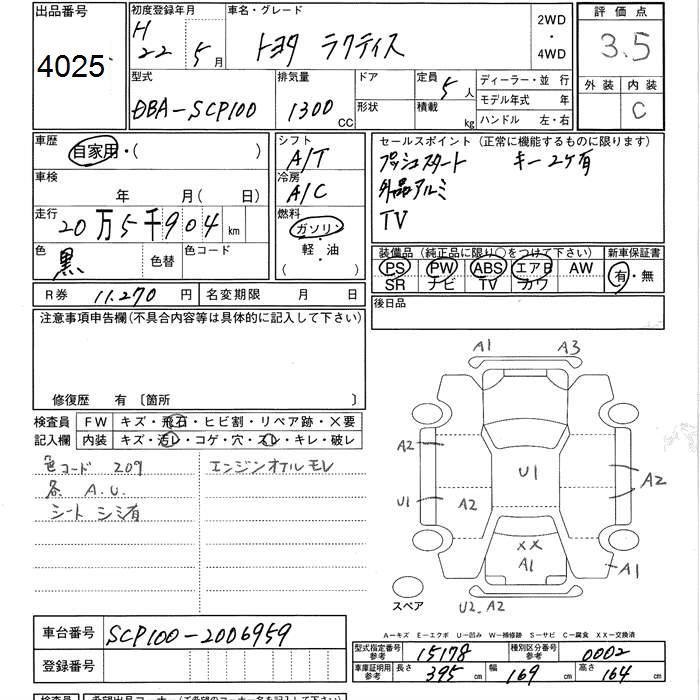 出品番号
4025
初度登録年月
H
22年 5月
車名・グレード
トヨタ ラクティス
2WD
・
4WD
評価点
3.5
外装 内装
C
型式
DBA-SCP100
排気量
1300 CC
ドア
形状
定員
5 人
積載
kg
ディーラー・並行
モデル年式 年
ハンドル 左・右
車歴
自家用・( )
車検
年 月( 日)
走行
20万5千904 km
色
黒
色替
色コード
シフト
A/T
冷房
A/C
燃料
ガソリン・
軽・油
( )
セールスポイント(正常に機能するものに限ります)
プッシュスタート キー2ケ有
外品アルミ
TV
装備品(純正品に限り○をつけて下さい)
PS PW ABS エアB AW
SR ナビ TV カワ
新車保証書
有・無
後日品
R券 11.270 円
名変期限 月 日
注意事項申告欄(不具合内容等は具体的に記入して下さい)
修復歴 有 〔箇所 〕
検査員
記入欄
FW キズ・飛石・ヒビ割・リペア跡・×要
内装 キズ・汚レ・コゲ・穴・スレ・キレ・破レ
色コード 209
各 A.U.
シート シミ有
エンジンオイルモレ
A1 A3
A2
U1
A2
U1 A2
XX
A1
A1
U2.A2
スペア
A-キズ E-エクボ U-凹み W-補修跡 S-サビ C-腐食 XX-交換済
車台番号 SCP100-2006959
登録番号
型式指定番号
参考
15178
種別区分番号
参考
0002
車庫証明用
参考
長さ 395 cm 幅 169 cm 高さ 164 cm